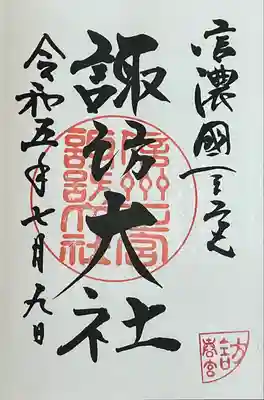 信濃國一之宮
諏訪大社
令和五年七月九日
信州一宮
諏訪大社
諏訪
春宮